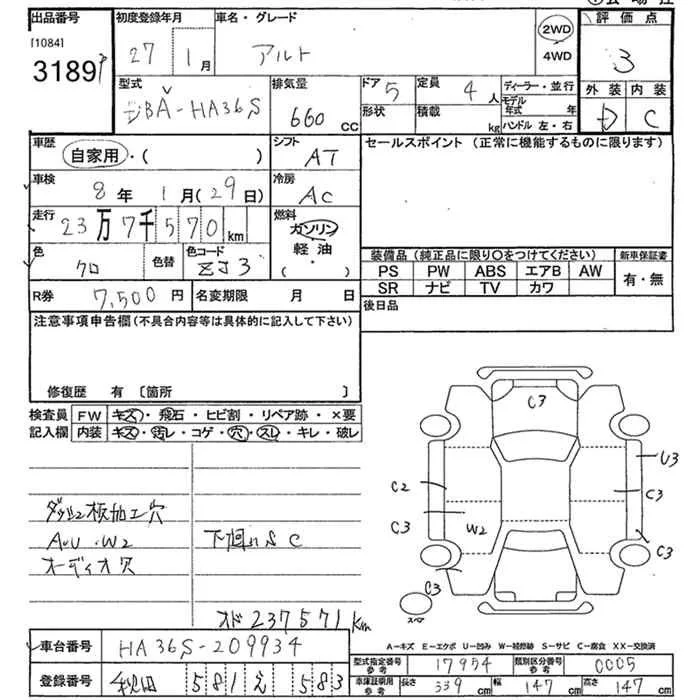 出品番号 初度登録年月 車名・グレード 2WD 4WD 評価点
[1084]
3189 27年 1月 アルト 3
型式 排気量 ドア 5 定員 4人 ディーラー・並行 外装 内装
DBA-HA36S 660cc 形状 積載 kg モデル年式 年 D C
ハンドル 左・右
車歴 シフト セールスポイント (正常に機能するものに限ります)
自家用・( ) AT
車検 冷房
8年 1月(29日) AC
走行 燃料
23万7千570km ガソリン
軽油
・( )
色 色替 色コード
クロ ZJ3
装備品(純正品に限り〇をつけてください) 新車保証書
PS PW ABS エアB AW 有・無
SR ナビ TV カワ
R券 7,500円 名変期限 月 日
後日品
注意事項申告欄(不具合内容等は具体的に記入して下さい)
修復歴 有〔箇所 〕
検査員 FW キズ・飛石・ヒビ割・リペア跡・×要
記入欄 内装 キズ・汚レ・コゲ・穴・スレ・キレ・破レ
C3
U3
C2 C3
C3 W2
C3
C3
スペア
ダッシュ板加工穴
A・U・W2 下回りS C
オーディオ穴
オド237571km
A=キズ E=エクボ U=凹み W=補修跡 S=サビ C=腐食 XX=交換済
車台番号 HA36S-209934
型式指定番号 参考 17954 類別区分番号 参考 0005
登録番号 秋田 581 え 583
車庫証明用 参考 長さ 339cm 幅 147cm 高さ 147cm